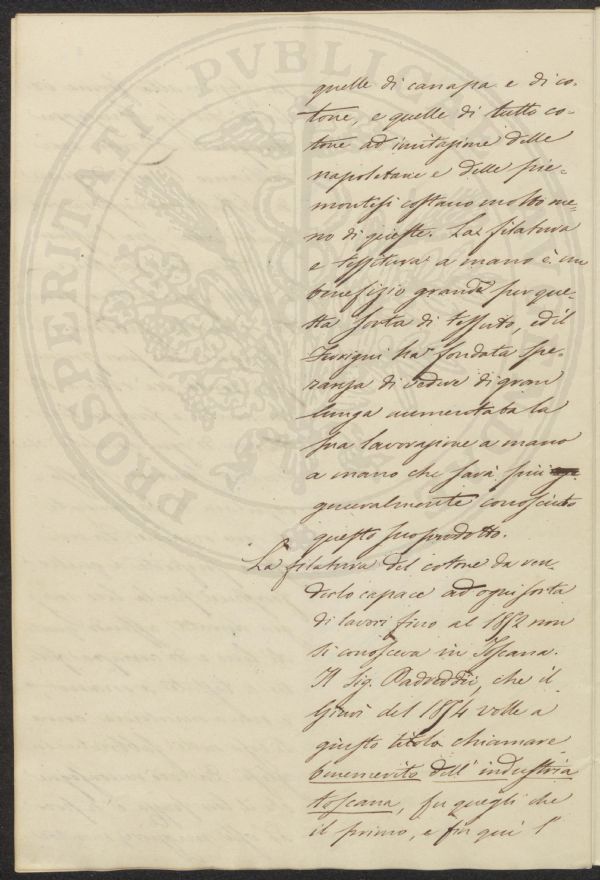 quelle di canapa e di co-
tone, e quelle di tutto co-
tone ad imitazione delle
napoletane e delle pie-
montesi costano molto me-
no di queste. La filatura
e tessitura a mano è un
benefizio grande per que-
sta sorta di tessuto, ed il
ha fondata spe-
ranza di vedere di gran
lunga aumentata la
sua lavorazione a mano
a mano che sarà più
generalmente conosciuto
questo suo prodotto.
La filatura del cotone da ren-
derlo capace ad ogni sorta
di lavori fino al 1852 non
si conosceva in Toscana.
Il Sig. che il
Giurì del 1854 volle a
giusto titolo chiamare
benemerito dell'industria
toscana, fu quegli che
il primo, e fin qui l'
PROSPERITATI PVBLICAE